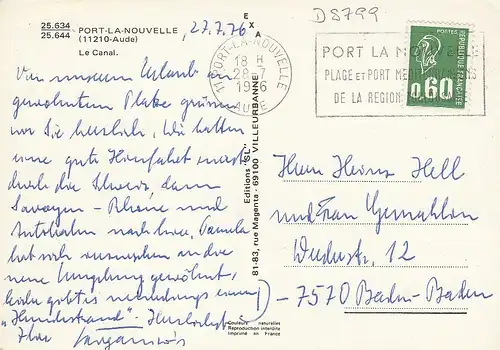 25.634
25.644
PORT-LA-NOUVELLE
(11210-Aude)
Le Canal.
27.7.76
Von unserem Urlaub am
gewohnten Platze grüssen
wir Sie herzlich. Wir hatten
eine gute Hinfahrt
durch die Schweiz, dann
Savoyen - Rhône und
Autobahn nach hier.
hat sich inzwischen an die
neue Umgebung gewöhnt,
leider gibt es neuerdings einen
"Hundestrand". Herzlichst
Ihre
EXA
Editions "SL"
81-83, rue Magenta - 69100 VILLEURBANNE
Couleurs naturelles
Reproduction interdite
Imprimé en France
D8799
11 PORT-LA-NOUVELLE
18 H
28-7
1976
AUDE
PORT LA
PLAGE et PORT
DE LA REGION
POSTES
REPUBLIQUE FRANÇAISE
0,60
Herrn Heinz Hell
und Frau Gemahlin
12
- 7570 Baden-Baden